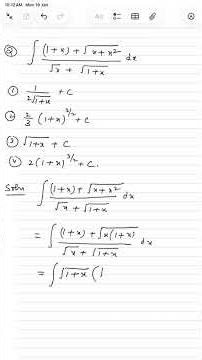 10:12 AM Mon 19 Jan
Q) ∫ ((1+x) + √(x+x²)) / (√x + √(1+x)) dx
① 1/(2√(1+x)) + C
② 2/3 (1+x)^(3/2) + C
③ √(1+x) + C
④ 2(1+x)^(3/2) + C.
Soln ∫ ((1+x) + √(x+x²)) / (√x + √(1+x)) dx
= ∫ ((1+x) + √(x(1+x))) / (√x + √(1+x)) dx
= ∫ √(1+x) (